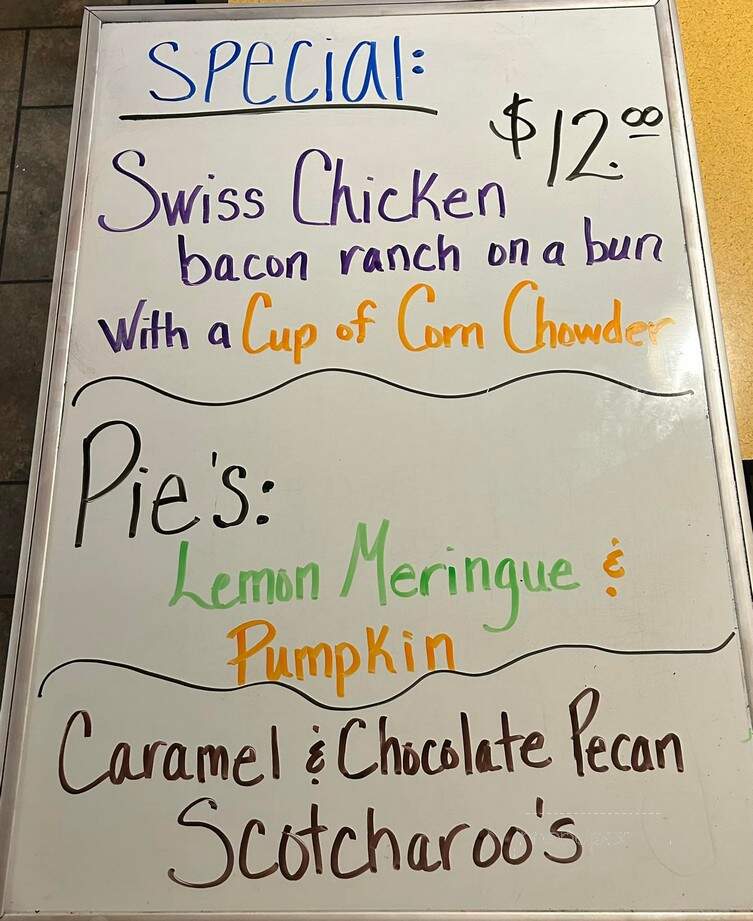 Special:
$12.00
Swiss Chicken
bacon ranch on a bun
With a Cup of Corn Chowder
Pie's:
Lemon Meringue &
Pumpkin
Caramel & Chocolate Pecan
Scotcharoo's